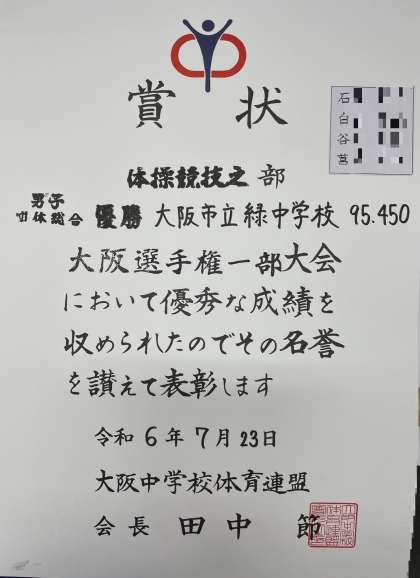 賞状
石
白
谷
体操競技之部
男子
団体総合 優勝 大阪市立緑中学校 95.450
大阪選手権一部大会
において優秀な成績を
収められたのでその名誉
を讃えて表彰します
令和6年7月23日
大阪中学校体育連盟
会長 田中 節